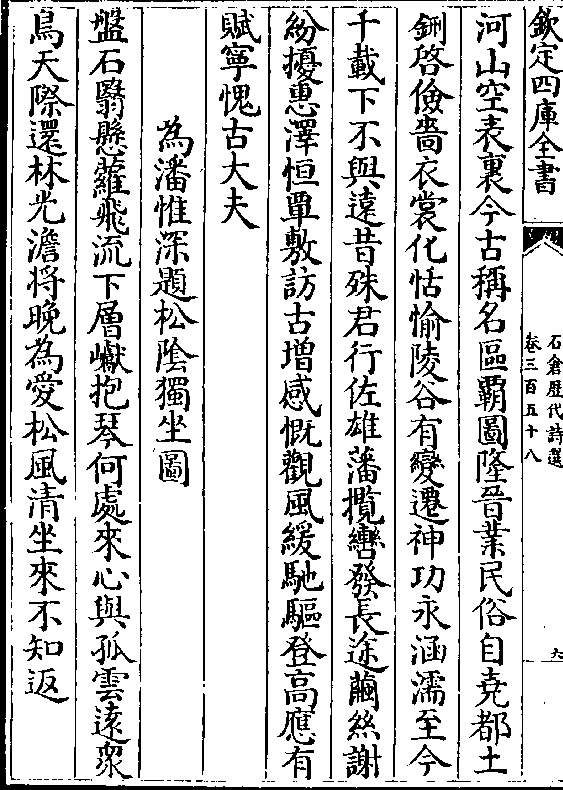 欽定四庫全書
石倉歴代詩選
卷三百五十八
六
河山空表裏今古稱名區覇圖隆晉業民俗自堯都土
鉶啓儉嗇衣裳化怙愉陵谷有變遷神功永涵濡至今
千載下不與遠昔殊君行佐雄藩攬轡發長途繭絲謝
紛擾惠澤恒覃敷訪古增感慨觀風緩馳驅登高應有
賦寧愧古大夫
為潘惟深題松隂獨坐圖
盤石翳懸蘿飛流下層巘抱琴何處來心與孤雲遠衆
鳥天際還林光澹将晚為愛松風清坐來不知返